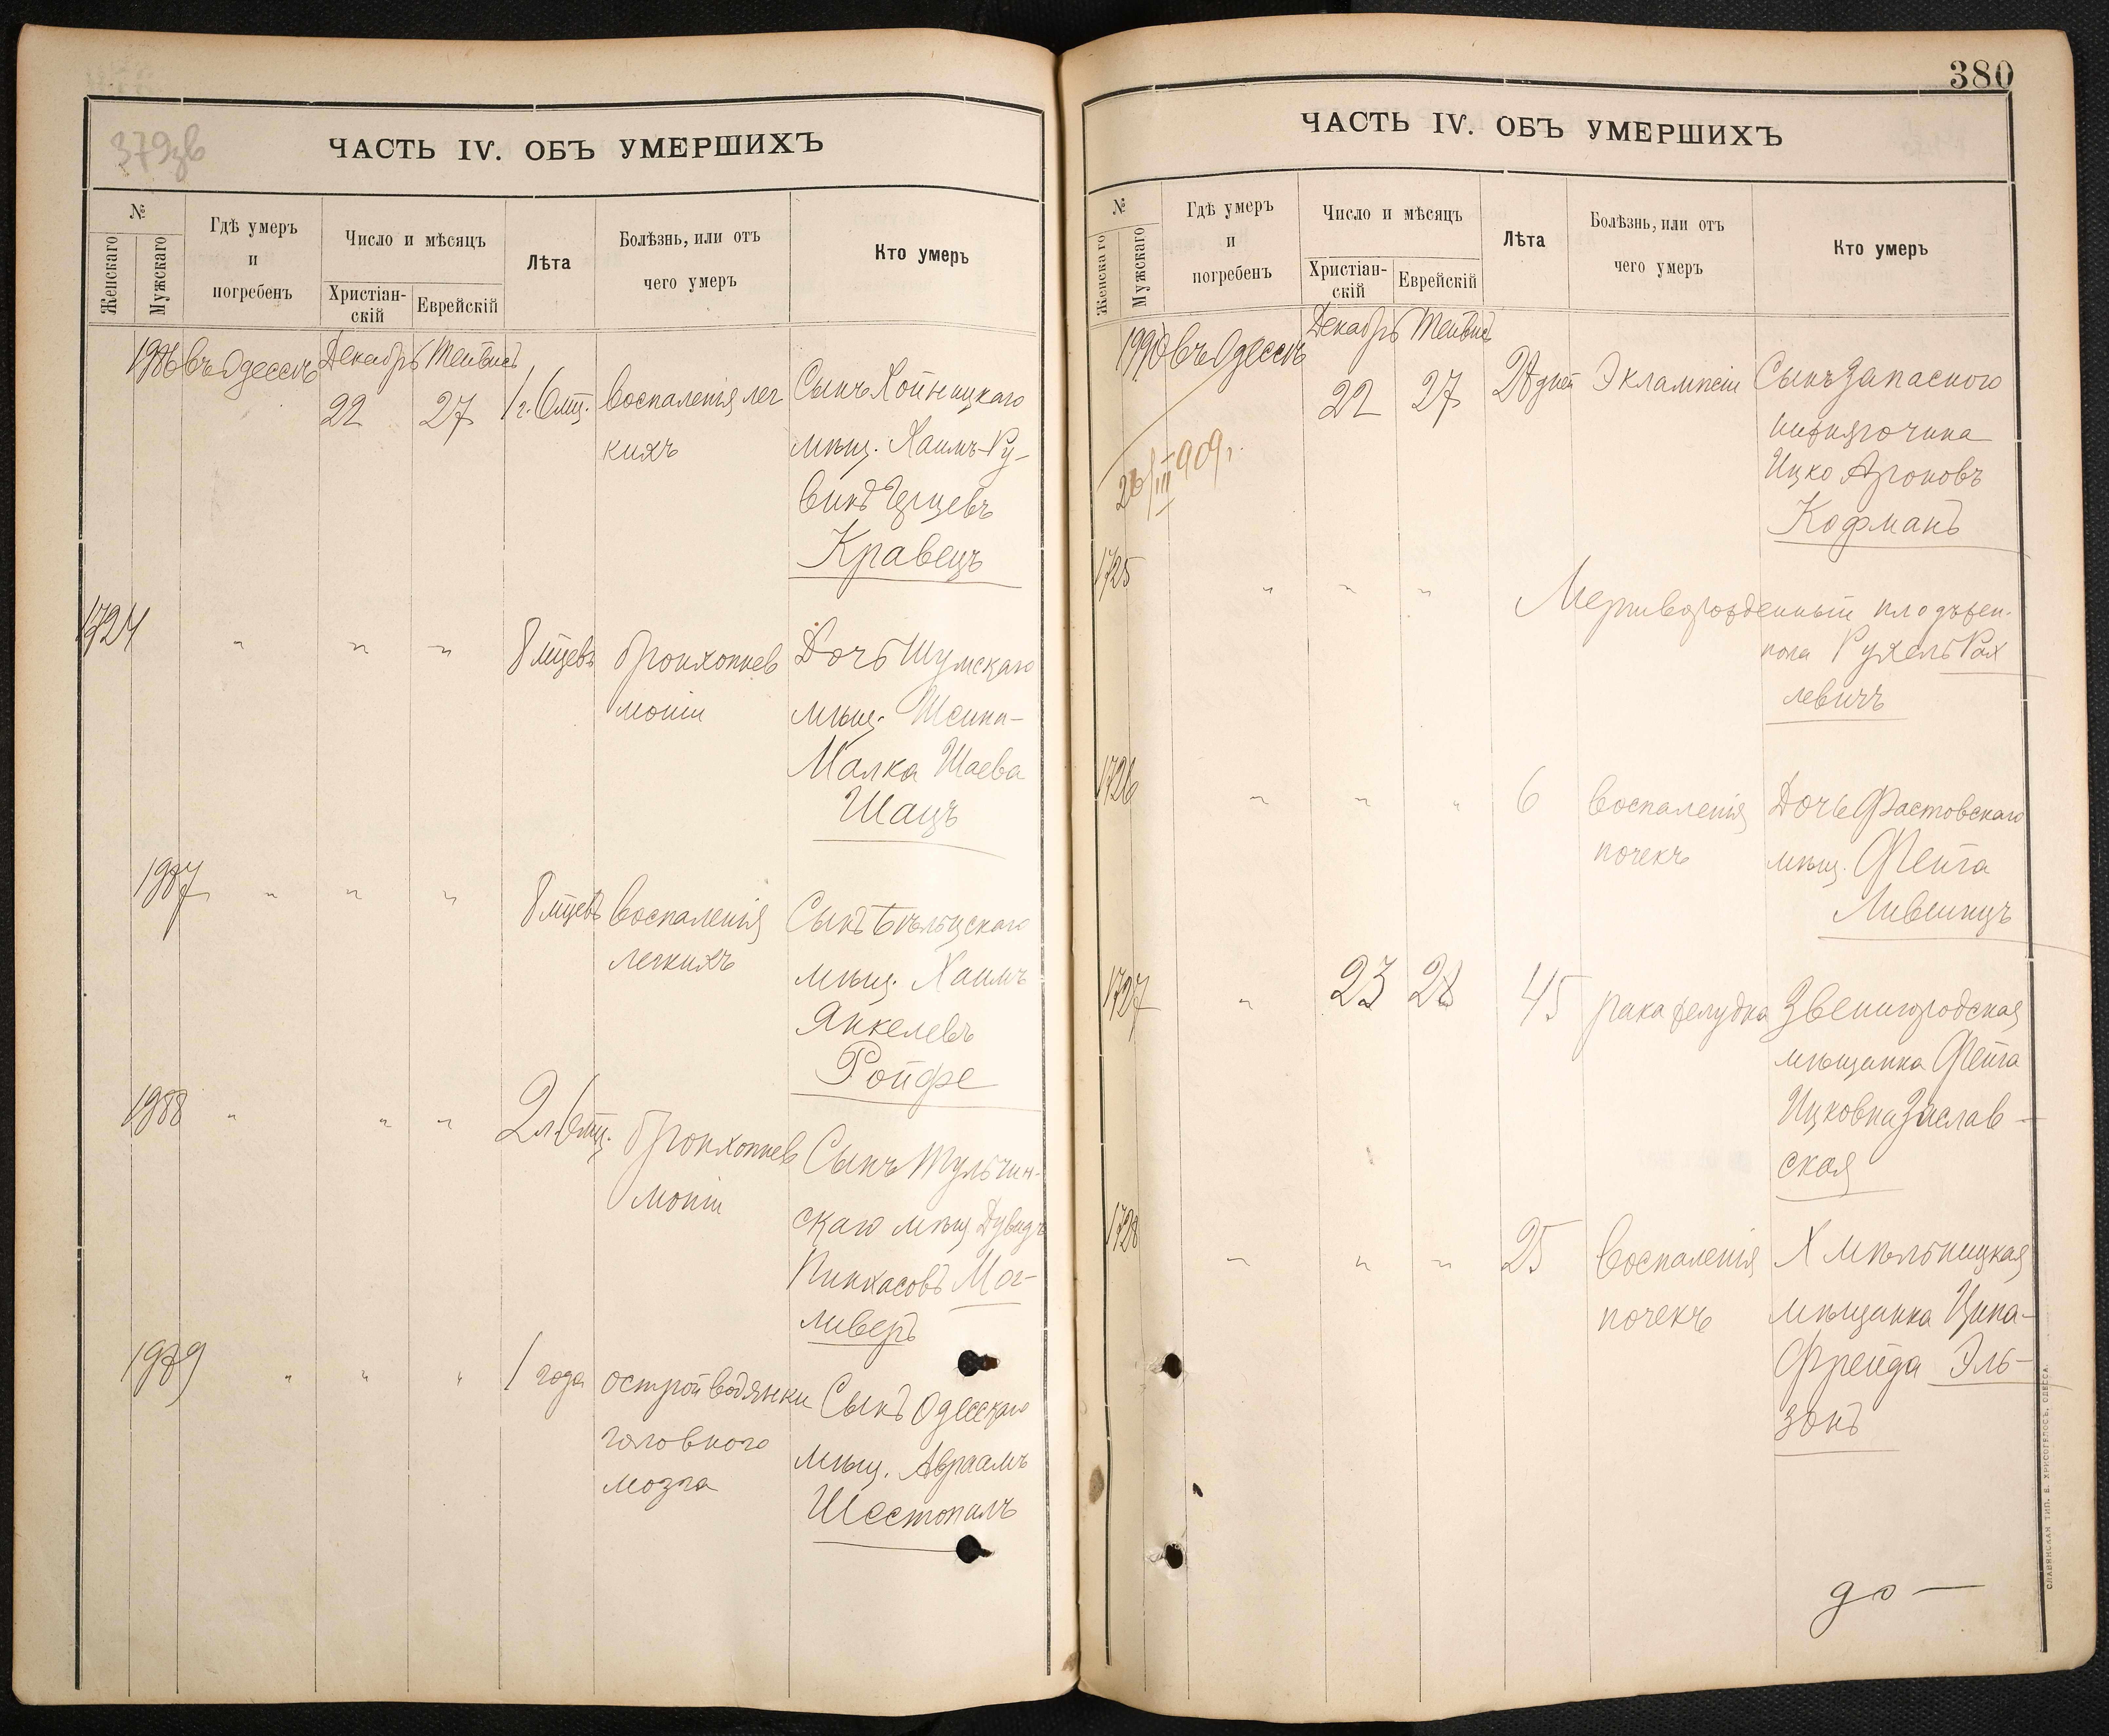 379зв
ЧАСТЬ IV. ОБЪ УМЕРШИХЪ
№
Женскаго
Мужскаго
Гдѣ умеръ
и
погребенъ
Число и мѣсяцъ
Христіан-
скій
Еврейскій
Лѣта
Болѣзнь, или отъ
чего умеръ
Кто умеръ
1986 въ Одессѣ Декабрь Тейвисъ
22 27 1 г. 6 мц. воспаленія лег
кихъ
Сынъ Хойницкаго
мѣщ. Хаимъ-Ру-
винъ Герцевъ
Кравецъ
1724 " " " 8 мцевъ бронхопнев
моніи
Дочь Шумскаго
мѣщ. Шейна-
Малка Шаева
Шацъ
1987 " " " 8 мцевъ воспаленія
легкихъ
Сынъ Бѣльцскаго
мѣщ. Хаимъ
Янкелевъ
Ройфе
1988 " " " 2 л. 6 мц. бронхопнев
моніи
Сынъ Тульчин-
скаго мѣщ. Дувидъ
Пинхасовъ Мог-
ливеръ
1989 " " " 1 года острой водянки
головного
мозга
Сынъ Одесскаго
мѣщ. Авраамъ
Шестопалъ
380
ЧАСТЬ IV. ОБЪ УМЕРШИХЪ
№
Женскаго
Мужскаго
Гдѣ умеръ
и
погребенъ
Число и мѣсяцъ
Христіан-
скій
Еврейскій
Лѣта
Болѣзнь, или отъ
чего умеръ
Кто умеръ
1990 въ Одессѣ Декабрь Тейвисъ
22 27 28 дней Эклампсіи
26/III 909 г.
Сынъ запасного
нижн. чина
Ицко Ароновъ
Кофманъ
1725 " " " Мертворожденный плодъ жен.
пола Рухель Рах
левичъ
1726 " " " 6 воспаленія
почекъ
Дочь Фастовскаго
мѣщ. Фейга
Лившицъ
1727 " 23 28 45 рака желудка
Звенигородская
мѣщанка Фейга
Ицковна Заслав-
ская
1728 " " " 25 воспаленія
почекъ
Хмѣльницкая
мѣщанка Ципа-
Фрейда Эль-
зонъ
до —
СЛАВЯНСКАЯ ТИП. Е. ХРИСОГЕЛОСЪ, ОДЕССА.